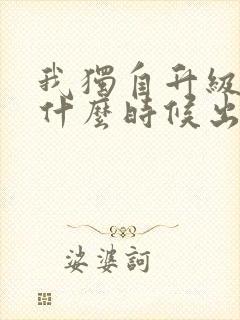 我獨自升級
什麼時候出
娑婆訶